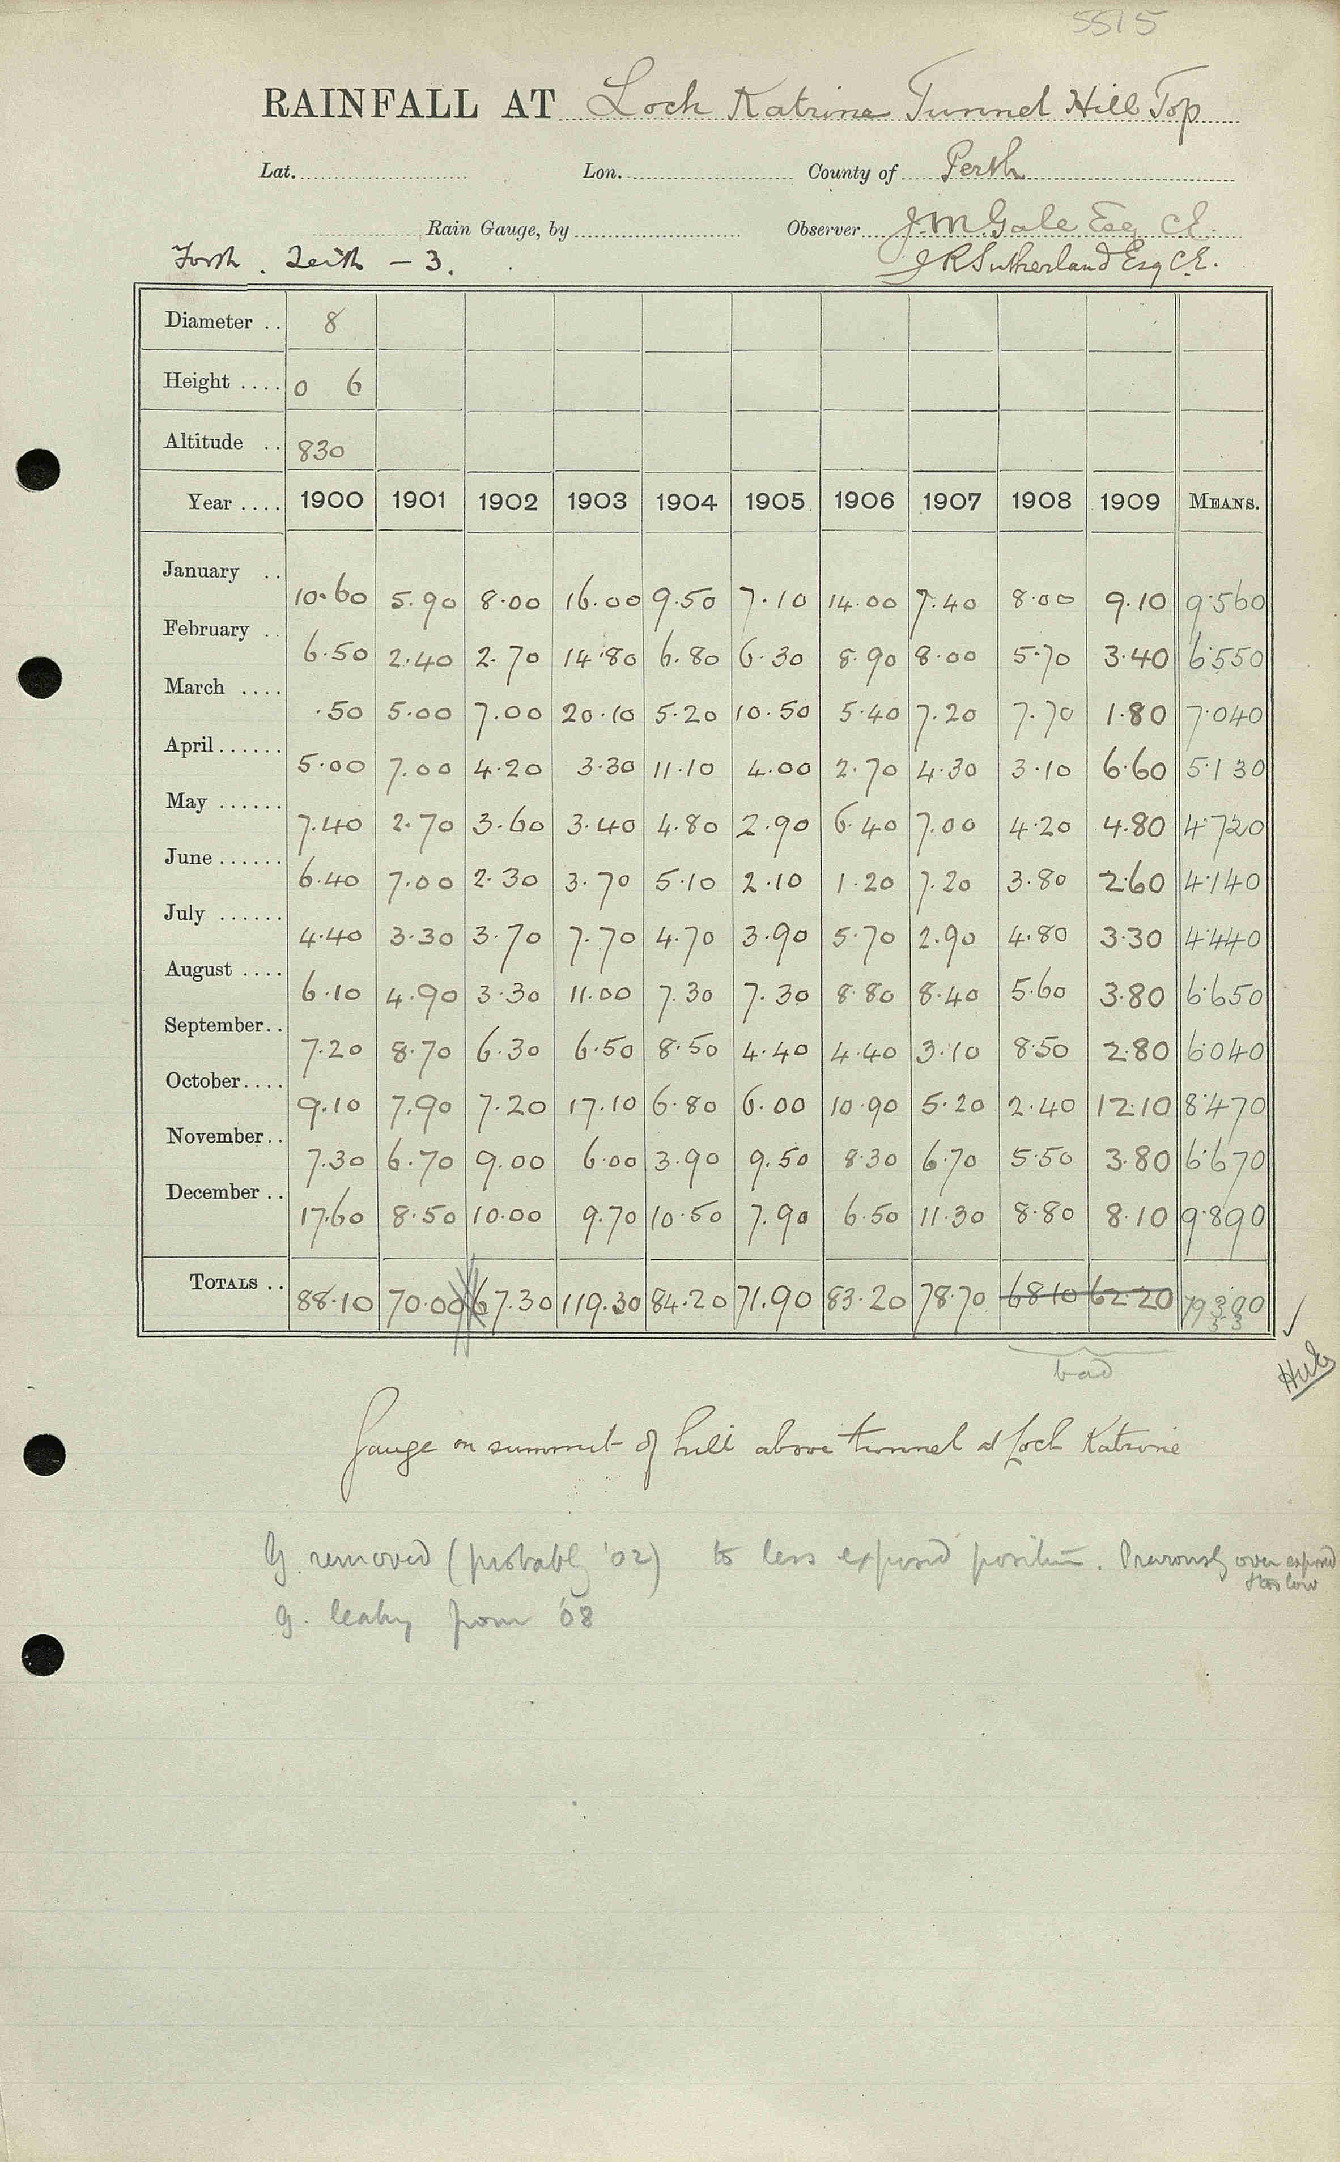 5515
RAINFALL AT Loch Katrine Tunnel Hill Top
Lat. Lon. County of Perth
Rain Gauge, by Observer J. M. Gale Esq CE
Forth . Teith - 3. J R Sutherland Esq C.E.
Diameter .. 8
Height .... 0 6
Altitude .. 830
Year .... 1900 1901 1902 1903 1904 1905 1906 1907 1908 1909 MEANS.
January .. 10.60 5.90 8.00 16.00 9.50 7.10 14.00 7.40 8.00 9.10 9.560
February .. 6.50 2.40 2.70 14.80 6.80 6.30 8.90 8.00 5.70 3.40 6.550
March .... .50 5.00 7.00 20.10 5.20 10.50 5.40 7.20 7.70 1.80 7.040
April ...... 5.00 7.00 4.20 3.30 11.10 4.00 2.70 4.30 3.10 6.60 5.130
May ...... 7.40 2.70 3.60 3.40 4.80 2.90 6.40 7.00 4.20 4.80 4.720
June ...... 6.40 7.00 2.30 3.70 5.10 2.10 1.20 7.20 3.80 2.60 4.140
July ...... 4.40 3.30 3.70 7.70 4.70 3.90 5.70 2.90 4.80 3.30 4.440
August .... 6.10 4.90 3.30 11.00 7.30 7.30 8.80 8.40 5.60 3.80 6.650
September.. 7.20 8.70 6.30 6.50 8.50 4.40 4.40 3.10 8.50 2.80 6.040
October.... 9.10 7.90 7.20 17.10 6.80 6.00 10.90 5.20 2.40 12.10 8.470
November.. 7.30 6.70 9.00 6.00 3.90 9.50 8.30 6.70 5.50 3.80 6.670
December .. 17.60 8.50 10.00 9.70 10.50 7.90 6.50 11.30 8.80 8.10 9.890
TOTALS .. 88.10 70.00 67.30 119.30 84.20 71.90 83.20 78.70 68.10 62.20
bad
Gauge on summit of hill above tunnel at Loch Katrine
G removed (probably '02) to less exposed position. Previously over exposed
& too low
G. leaky from '08